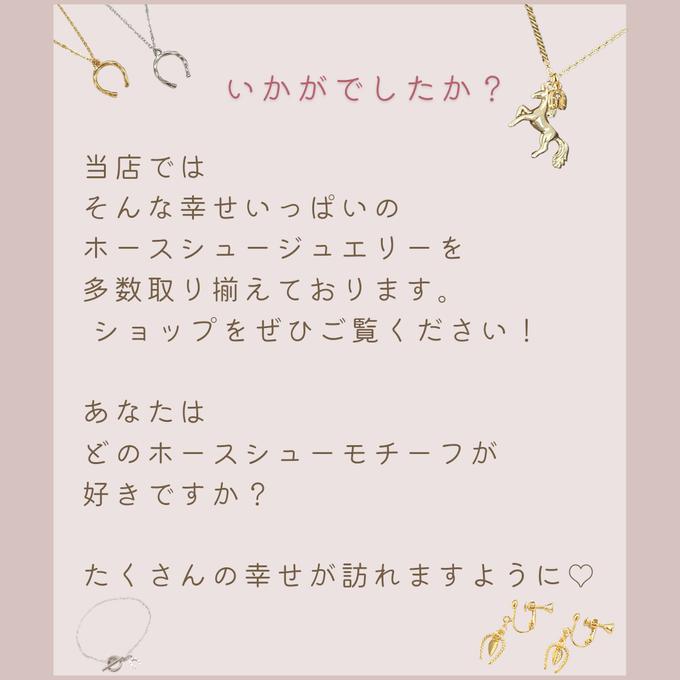 いかがでしたか？
当店では
そんな幸せいっぱいの
ホースシュージュエリーを
多数取り揃えております。
ショップをぜひご覧ください！
あなたは
どのホースシューモチーフが
好きですか？
たくさんの幸せが訪れますように♡